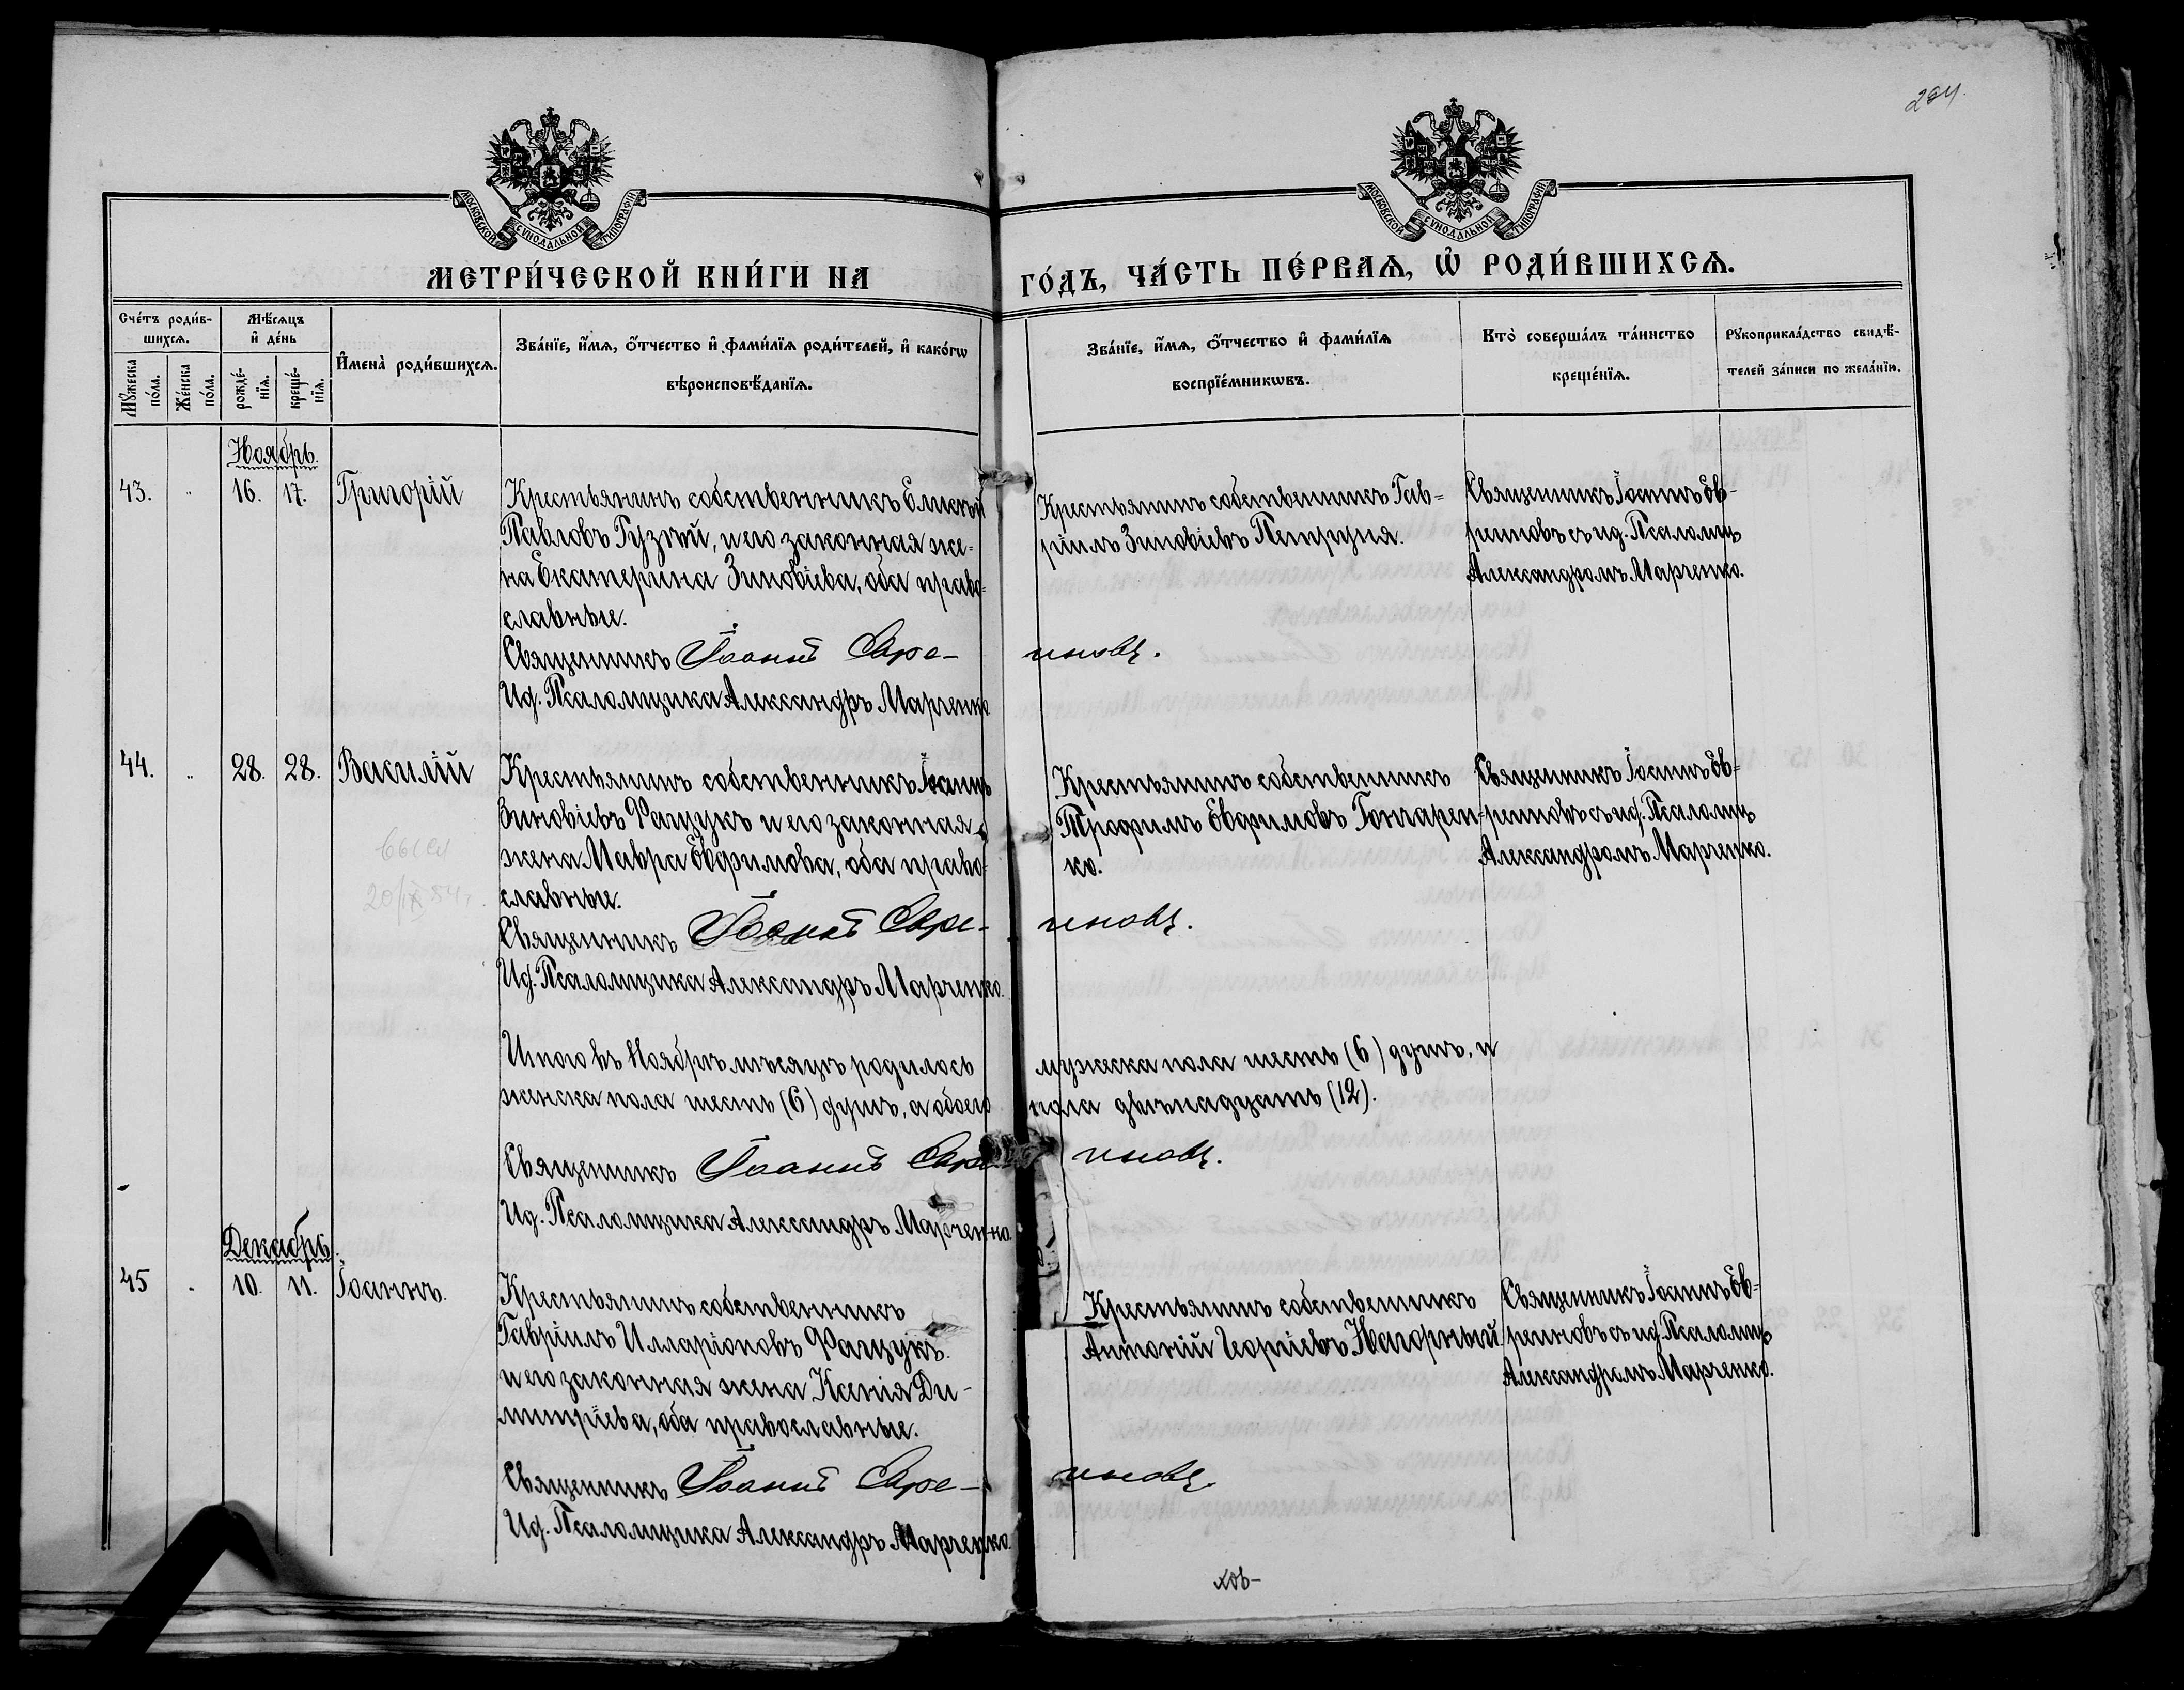 294.
МОСКОВСКОЙ СѴНОДАЛЬНОЙ ТИПОГРАФІИ
МОСКОВСКОЙ СѴНОДАЛЬНОЙ ТИПОГРАФІИ
МЕТРИ́ЧЕСКОЙ КНИ́ГИ НА
ГО́ДЪ, ЧА́СТЬ ПЕ́РВАѦ, Ѡ҆ РОДИ́ВШИХСѦ.
Сче́тъ роди́в-
шихсѧ.
Мꙋ́жеска по́ла.
Же́нска по́ла.
Мѣ́сѧцъ
и҆ де́нь
рожде́-
нїѧ.
креще́-
нїѧ.
И҆мена̀ роди́вшихсѧ.
Зва́нїе, и҆́мѧ, ѻ҆́тчество и҆ фами́лїѧ роди́телей, и҆ како́гѡ
вѣроисповѣ́данїѧ.
Зва́нїе, и҆́мѧ, ѻ҆́тчество и҆ фами́лїѧ
воспрїе́мникѡвъ.
Кто̀ соверша́лъ та́инство
креще́нїѧ.
Рꙋкоприкла́дство свидѣ́-
телей за́писи по жела́нїю.
Ноябрь.
43. " 16. 17. Григорій
Крестьянинъ собственникъ Елисѣй
Павловъ Гузѣй, и его законная же-
на Екатерина Зиновіева, оба право-
славные.
Священникъ Іоаннъ Евре-
иновъ.
Ид. Псаломщика Александръ Марченко
Крестьянинъ собственникъ Гав-
ріилъ Зиновіевъ Петруня.
Священникъ Іоаннъ Ев-
реиновъ съ ид. Псаломщ
Александромъ Марченко.
44. " 28. 28. Василій
Крестьянинъ собственникъ Іоаннъ
Зиновіевъ Фащукъ и его законная
жена Мавра Евфимова, оба право-
славные.
Священникъ Іоаннъ Евре-
иновъ.
Ид. Псаломщика Александръ Марченко.
Крестьянинъ собственникъ
Трофимъ Евфимовъ Гончарен-
ко.
Священникъ Іоаннъ Ев-
реиновъ съ ид. Псаломщ
Александромъ Марченко.
20/IX 54г.
Итого въ Ноябрѣ мѣсяцѣ родилось
мужеска пола шесть (6) душъ, и
женска пола шесть (6) душъ, а обоего
пола двѣнадцать (12).
Священникъ Іоаннъ Евре-
иновъ.
Ид. Псаломщика Александръ Марченко.
Декабрь.
45 " 10. 11. Іоаннъ.
Крестьянинъ собственникъ
Гавріилъ Илларіоновъ Фащукъ.
и его законная жена Ксенія Ди-
митріева, оба православные.
Священникъ Іоаннъ Евре-
иновъ.
Ид. Псаломщика Александръ Марченко.
Крестьянинъ собственникъ
Антоній Георгіевъ Нагорный.
Священникъ Іоаннъ Ев-
реиновъ съ ид. Псаломщ
Александромъ Марченко.